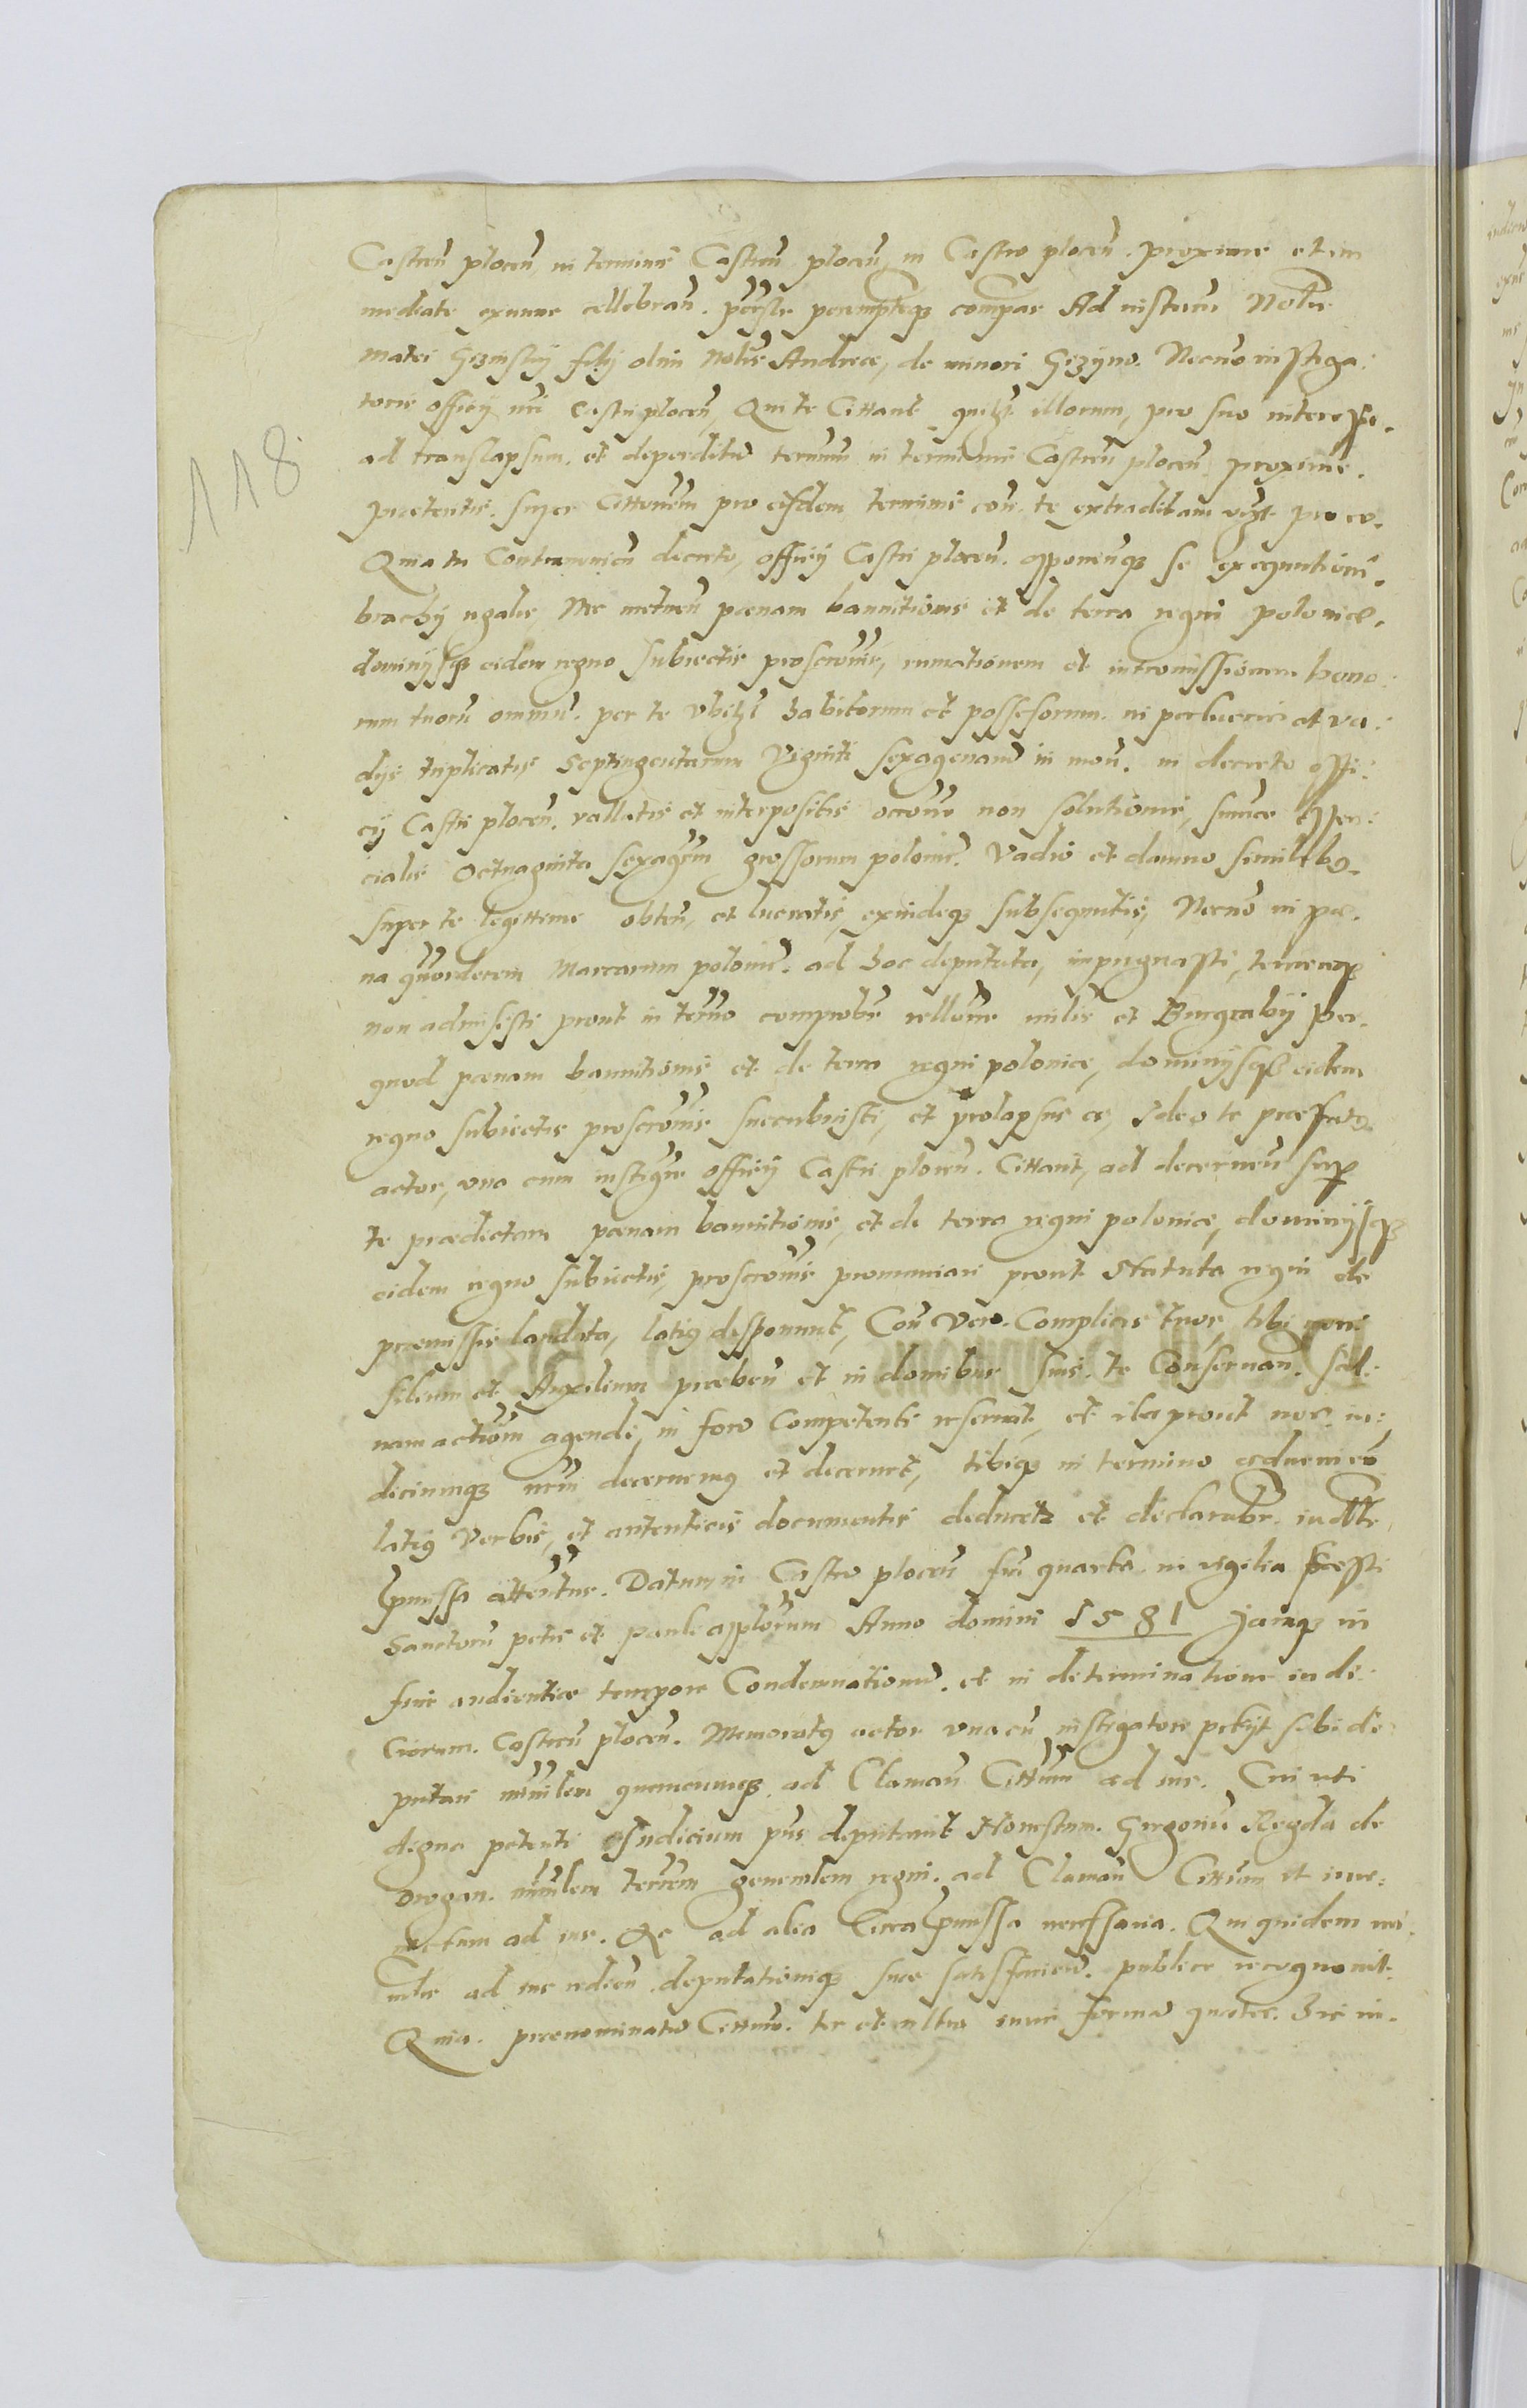 Castren plocen in terminis Castren plocen in Castro plocen. proxime et im
mediate exnunc cellebran. peremptieqз compas Ad instantiam Nobilis
Matei Gizinskij filij olim Nobilis Andreae, de minori Gizyno. Necno instiga:
toris officij nri Castri plocen, Qui te Cittant quilzt illorum, pro suo interesse.
ad translapsum. et deperditu terminum in terminis Castren plocen proxime.
praeteritis. super Cittonem pro eisdem terminis con te extraditam vizt pro eo.
Quia tu Contravenien decreto, officij Castri plocen. opponenqз se executioni.
brachij regalis Nec metuen poenam bannitionis et de terra regni poloniae,
dominijsqз eidem regno subiectis proscronis, rumationem et intromissionem bono:
rum tuoru omniu. per te vbilzt habitorum et possesorum. in perlucris et va:
dijs triplicatis Septingentarum Viginti sexagenaru in mon. in decreto offi:
cij Castri plocen. vallatis et interpositis occone non solutionis, summae
cialis Octuaginta sexagem grossorum polonic. Vadio et damno similibus.
super te legittime obten, et lucratis, exindeqз subsequutis, Necno in poe.
na quordecem Marcarum polonic. ad hoc deputata, inpugnasti,
non admisisti prout in termo comprobr rellone mlis et Burgrabij per.
quod poenam bannitionis et de terra regni poloniae, dominijsqз eidem
regno subiectis proscronis succubuisti, et prolapsus es, Ideo te praefatus
actor, vna cum instigre officij Castri plocen. Cittant, ad decernen sup
te praedictam poenam bannitionis, et de terra regni poloniae, dominijsqз
eidem regno subiectis, proscronis promunciari prout Statuta regni de
praemissis laudata, latius disponunt, Con Vero. Complices tuos, tibi con
silium et Auxilium praeben et in domibus suis. te Conseruan. sal:
uam actiom agendi, in foro Competenti reseruat, et ita prout nos. iu:
diciumqз nrm decernemus et decernet, tibiqз in termino aduenien
latius Verbis, et autenticis documentis deducetr et declarabr. iudtr
pmissa attentur. Datum in Castro plocen fra quarta in vigilia Festi
Sanctoru petri et pauli applorum Anno domini 1581 Jamqз in
fine audientiae tempore Condemnationu. et in determinatione iudi:
ciorum. Castren plocen. Memoratus actor vna cu instigatore petijt sibi de
putari mnilem quemcunqз ad Claman Cittum ad ius. Cui uti
digna petenti Iudicium pns deputauit Honestum. Gregoriu Regda de
Drogan. mnilem terrem generalem regni. ad Claman Cittum et inue:
ctum ad ius. Et ad alia circa pmissa necessaria. Qui quidem mi
nilis ad ius redien deputationiqз suae satisfacien. publice recognouit.
Quia. praenominatu Cittum. ter et vltra iuris forma quater. hic in.